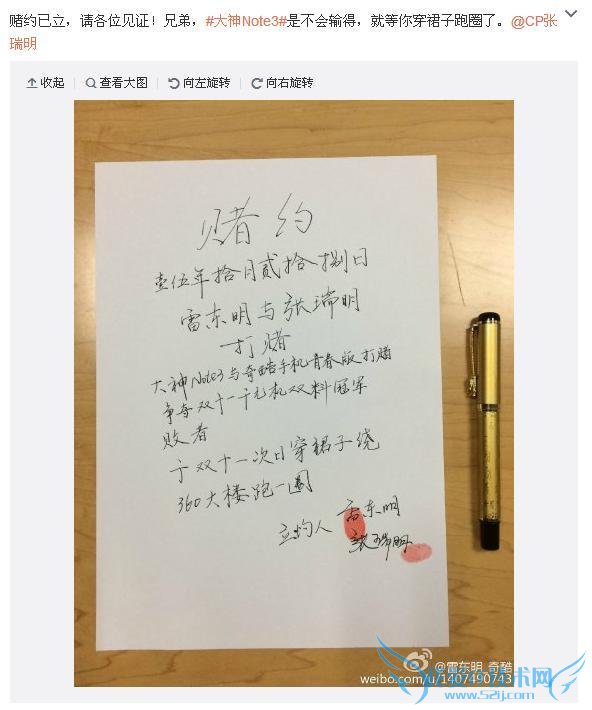 赌约已立，请各位见证！兄弟，#大神Note3#是不会输得，就等你穿裙子跑圈了。@CP张
瑞明
收起
查看大图
向左旋转
向右旋转
赌约
壹伍年拾月贰拾捌日
雷东明与张瑞明
打赌
大神Note3与奇酷手机青春版打赌
争夺双十一千元机双料冠军
败者
于双十一次日穿裙子绕
360大楼跑一圈
立约人 雷东明
张瑞明
@雷东明_奇酷
weibo.com/u/1407490743
www.52ij.com